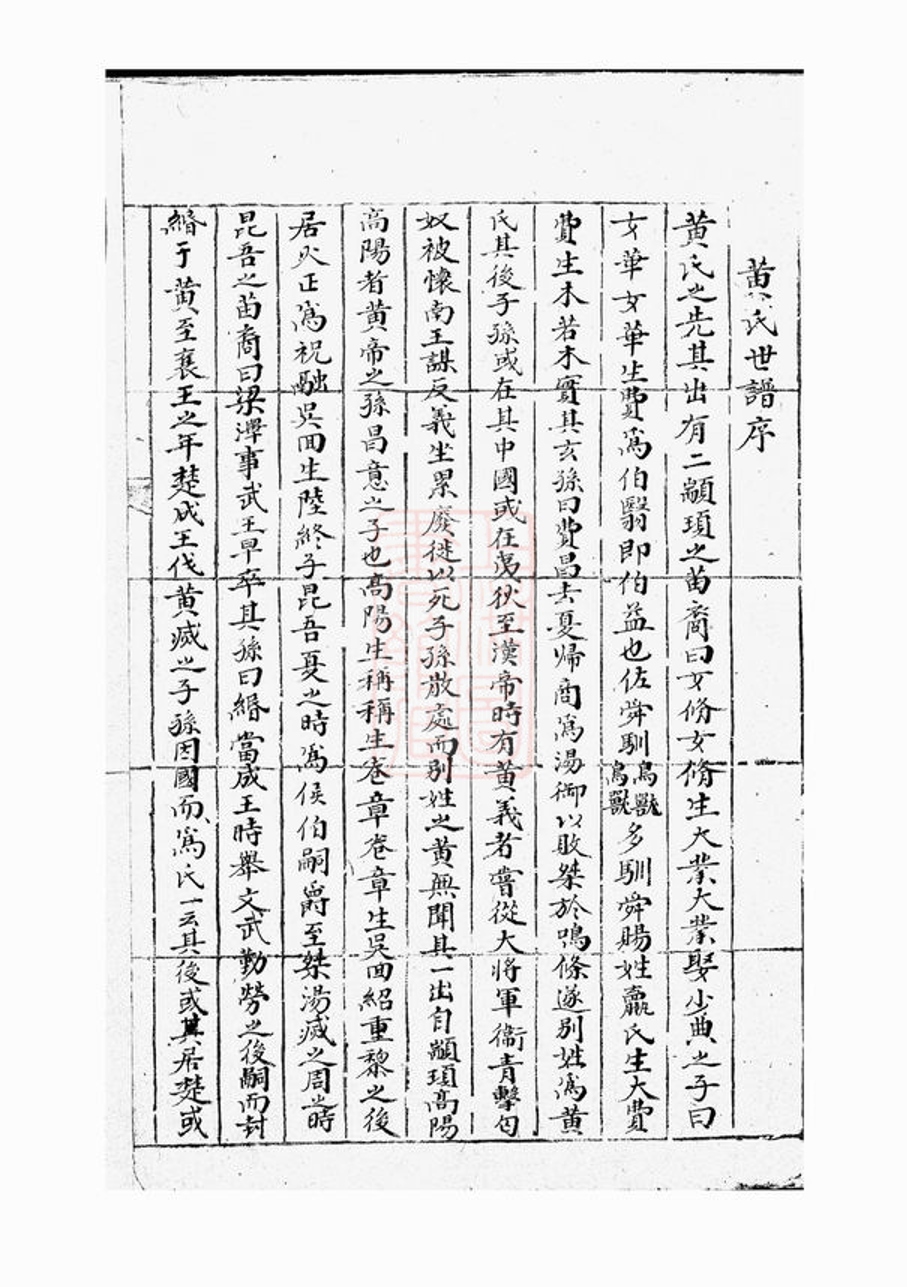 黄氏世譜序
黄氏之先其出有二顓頊之苗裔曰女脩女脩生大業大業娶少典之子曰
女華女華生費為伯翳即伯益也佐舜馴鳥獸鳥獸多馴舜賜姓嬴氏生大費
費生木若木實其玄孫曰費昌去夏歸商為湯御以敗桀於鳴條遂別姓為黄
氏其後子孫或在其中國或在夷狄至漢帝時有黄義者嘗從大將軍衛青擊匈
奴被懷南王謀反義坐累廢徙以死子孫散處而別姓之黄無聞其一出自顓頊高陽
高陽者黄帝之孫昌意之子也高陽生稱稱生卷章卷章生吳囬紹重黎之後
居火正為祝融吳囬生陸終子昆吾夏之時為侯伯嗣爵至桀湯滅之周之時
昆吾之苗裔曰梁潬事武王早卒其孫曰緡當成王時舉文武勤勞之後嗣而封
緡于黄至襄王之年楚成王伐黄滅之子孫因國而為氏一云其後或其居楚或